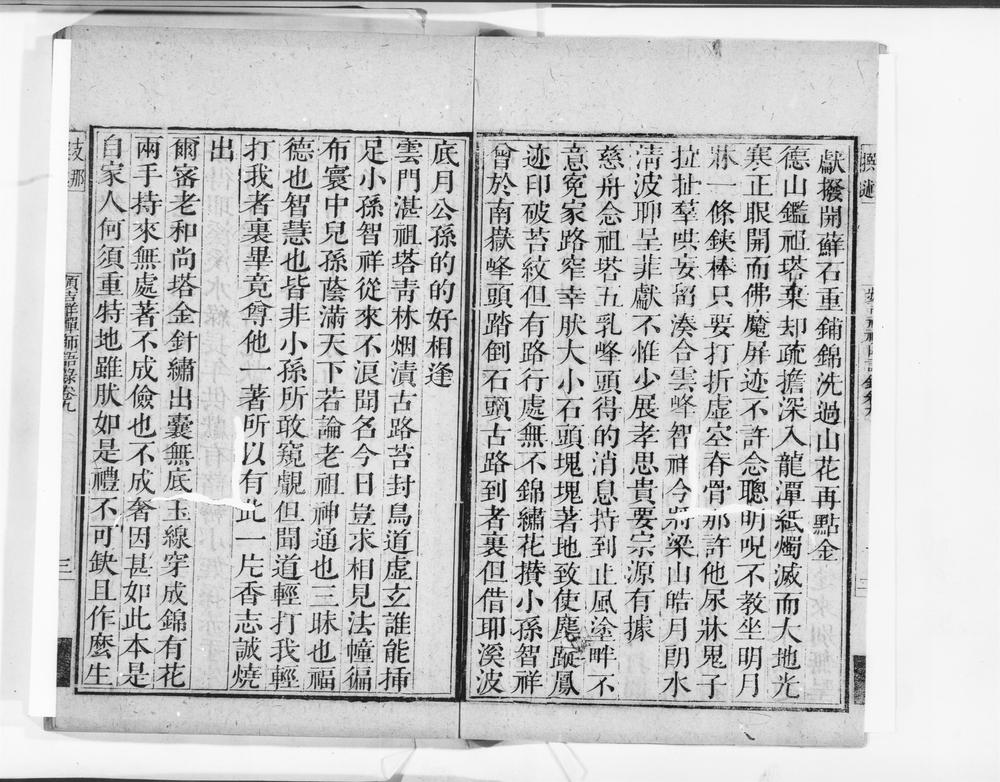 獻撥開蘚石重鋪錦洗過山花再點金
德山鑑祖塔棄却疏擔深入龍潭紙燭滅而大地光
寒正眼開而佛魔屏迹不許念聰明呪不教坐明月
牀一條鋏棒只要打折虛空脊骨那許他尿牀鬼子
扛扯羣哄妄㽞湊合雲峰智祥今將梁山皓月閉水
清波聊呈菲獻不惟少展孝思貴要宗源有據
慈舟念祖塔五乳峰頭得的消息持到止風塗畔不
意冤家路窄幸肰大小石頭塊塊著地致使麀蹤鳳
迹印破苔紋但有路行處無不錦繡花攅小孫智祥
曾於南嶽峰頭踏倒石頭古路到者裏但借耶溪波
底月公孫的的好相逢
雲門湛祖塔青林烟漬古路苔封鳥道虛玄誰能揷
足小孫智祥從來不浪聞名今日豈求相見法幢徧
布寰中兒孫蔭滿天下若論老祖神通也三昧也福
德也智慧也皆非小孫所敢窺覰但聞道輕打我輕
打我者裏畢竟尊他一著所以有此一片香志誠燒
出
爾密老和尚塔金針繡出囊無底玉線穿成錦有花
兩手持來無處著不成儉也不成奢因甚如此本是
自家人何須重特地雖肰如是禮不可缺且作麼生
支那
頻吉祥禪師語錄卷九
三